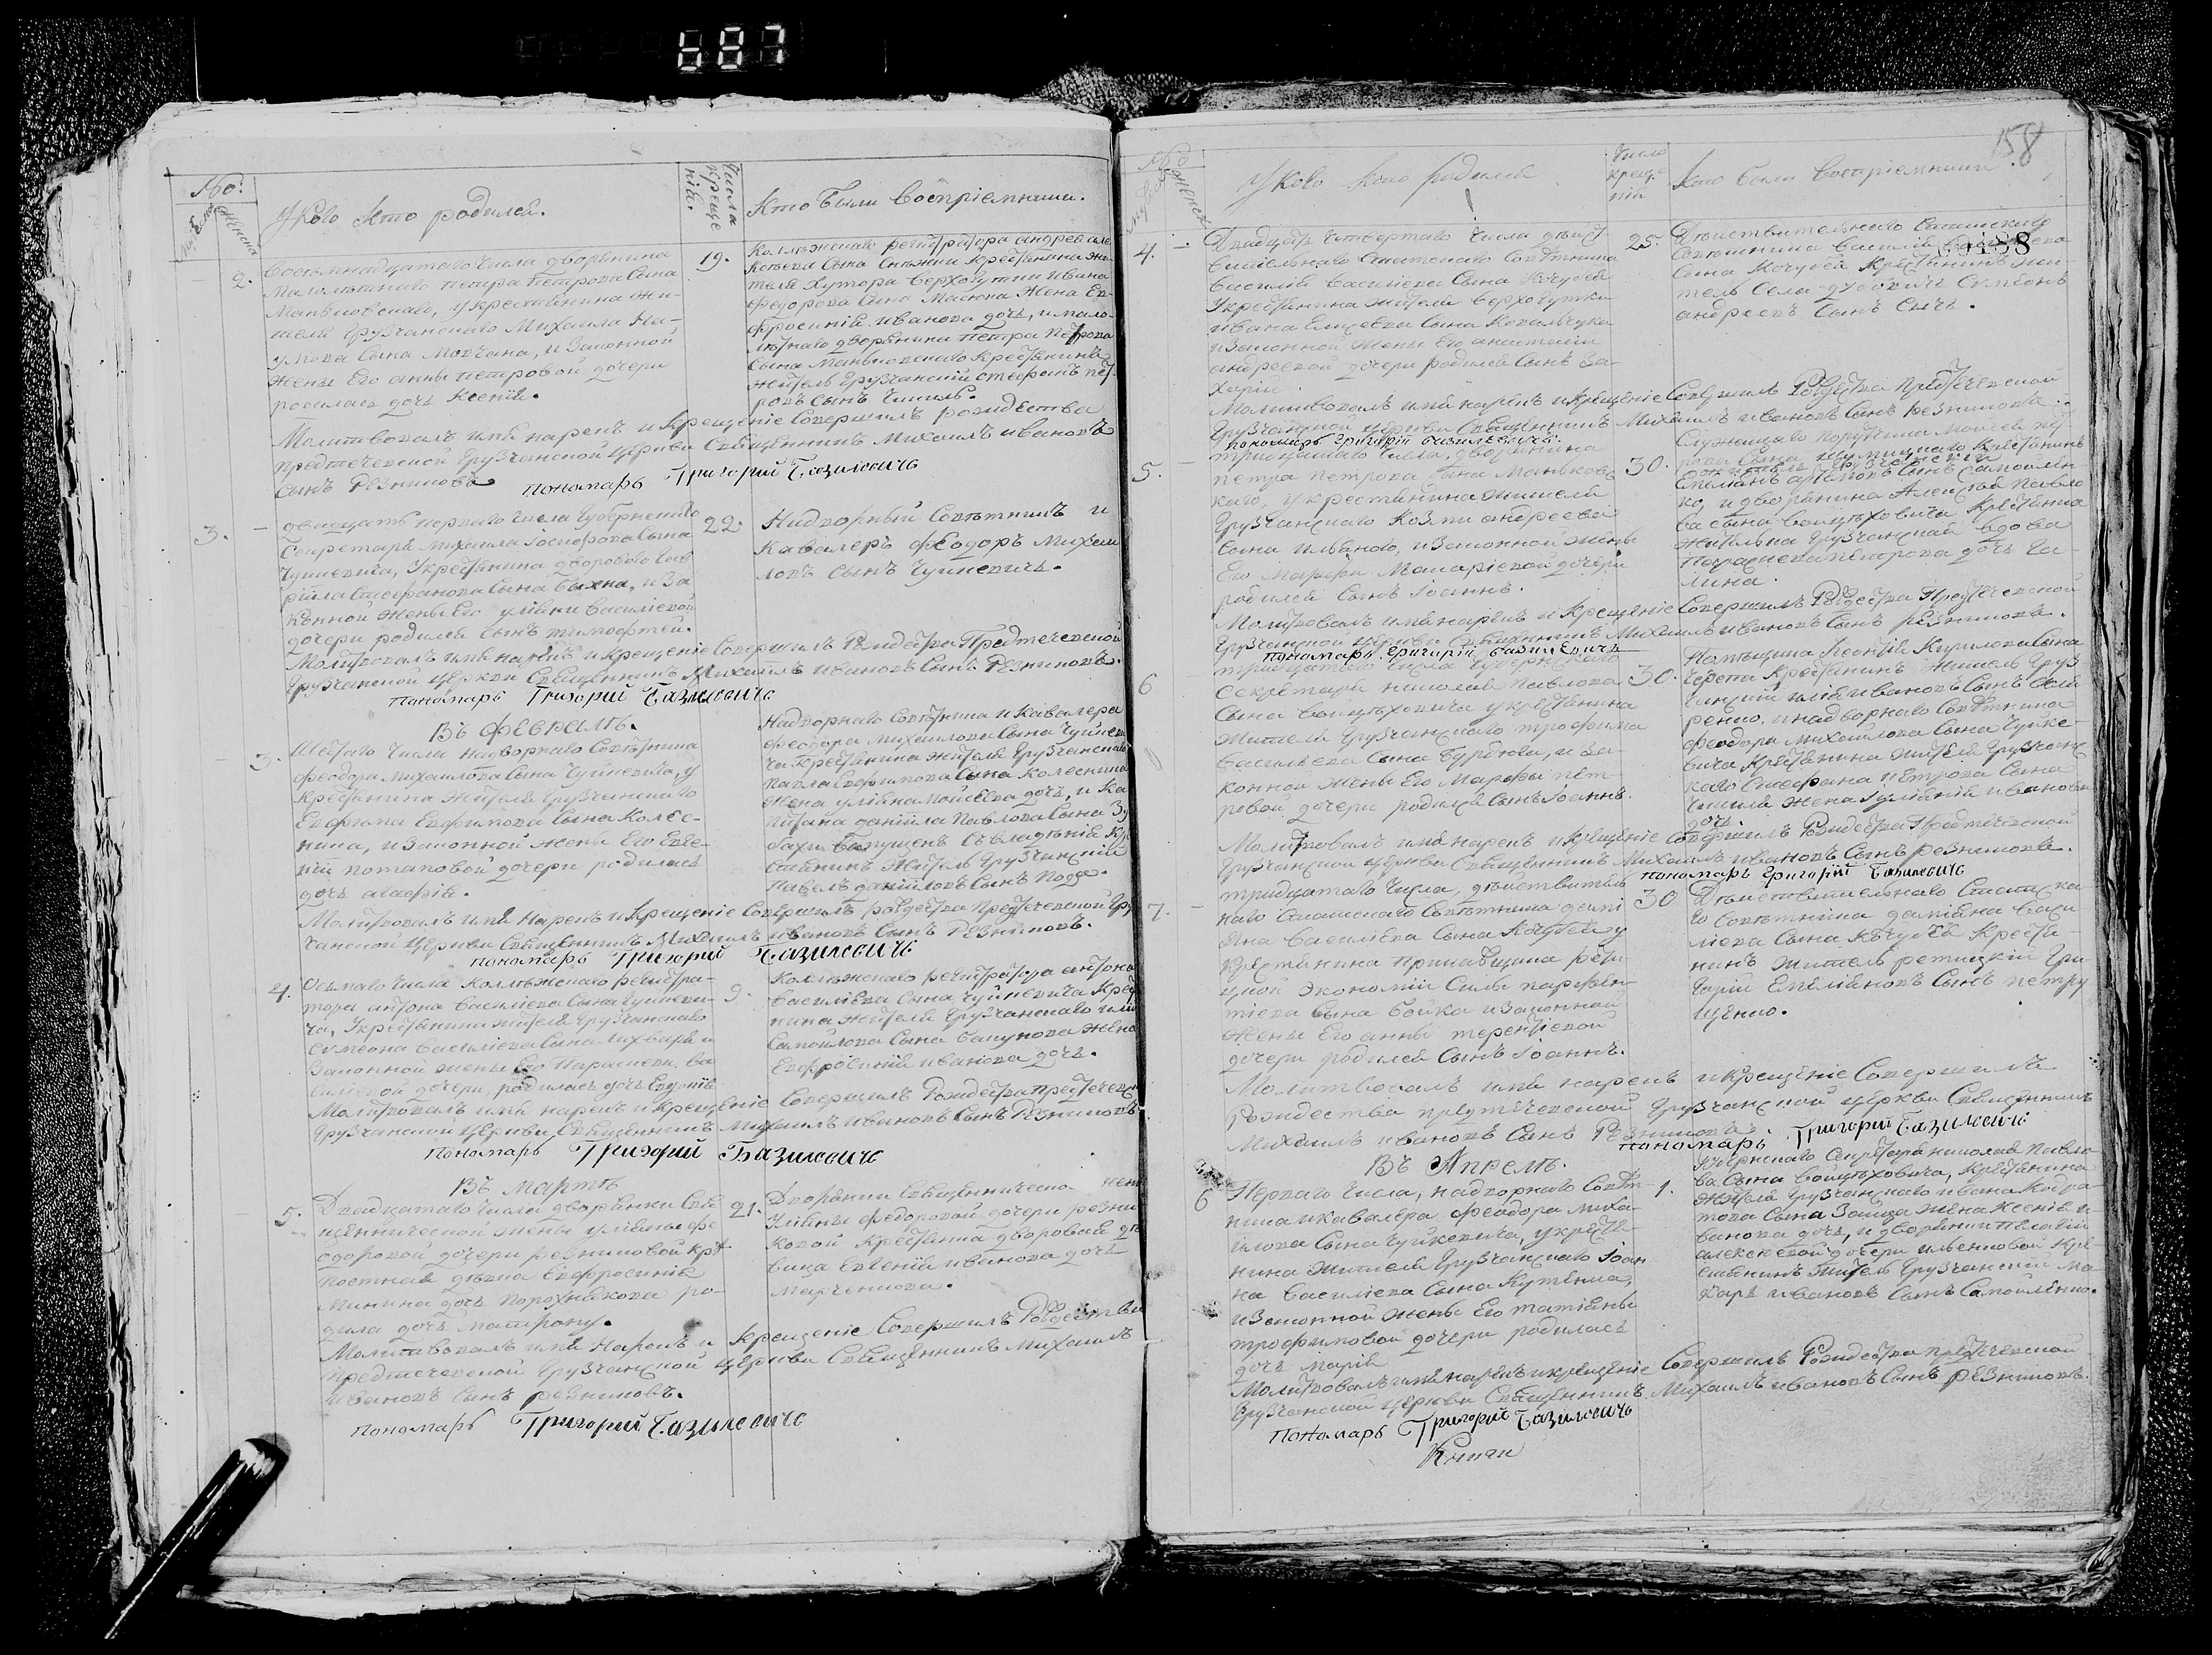 687
No:
Числа креще ній.
У Кого Кто родился.
Кто Были Воспріемники.
2.
Восемнадцатаго Числа дворянина
Малолѣтнаго петра Петрова Сына
Маньковскаго, у крестьянина жи-
теля Грузчанскаго Михаила На-
умова Сына Мовчана, и Законной
жены Его анны петровой дочери
родилась дочь Ксенія.
19.
Коллѣжскаго регистратора андрея
Сына крестьянина жи-
теля Хутора Верхолутки Ивана
федорова Сына Жена Ев-
фросинія иванова дочь, и мало-
лѣтнаго дворянина петра Петрова
Сына Маньковскаго крестьянинъ
житель Грузчанскій стефанъ пет-
ровъ Сынъ
Молитвовалъ имя нарекъ и крещеніе Совершилъ рождества
предтечевской Грузчанской церкви Священникъ Михаилъ ивановъ
Сынъ Резниковъ пономарь Григорій Базилевичъ
3.
двадцать перваго Числа Губернскаго
Секретаря михаила Сына
Чуйкевича, Укрестьянина двороваго Гав
ріила Стефанова Сына и За
конной жены Его уліяни василіевой
дочери родился Сынъ тимофтей.
22.
Надворный Совѣтникъ и
Кавалеръ феодоръ михай
ловъ Сынъ Чуйкевичъ.
Молитвовалъ имя нарекъ и крещеніе Совершилъ Рождества Предтечевской
Грузчанской церкви Священникъ Михаилъ ивановъ Сынъ Резниковъ.
пономарь Григорій Базилевичъ
Въ февралѣ.
3.
Шестаго Числа надворнаго Совѣтника
феодора михайлова Сына Чуйкевича, у
крестьянина жителя Грузчанскаго
Евфима Евфимова Сына Колес-
ника, и Законной жены Его Евге-
ніи потаповой дочери родилась
дочь агафія.
Надворнаго Совѣтника и Кавалера
феодора михайлова Сына Чуйкеви
ча крестьянина жителя Грузчанскаго
павла Евфимова Сына Колесника
жена уліяна моисеева дочь, и ка
питана даніила павлова Сына
житель Грузчанскій
Павелъ даніиловъ Сынъ
Молитвовалъ имя нарекъ и крещеніе Совершилъ рождества предтечевской Груз
чанской церкви Священникъ Михаилъ Ивановъ Сынъ Резниковъ.
пономарь Григорій Базилевичъ
4.
Осьмаго Числа Коллѣжскаго регистра-
тора антона василіева Сына Чуйкеви-
ча, Укрестьянина жителя Грузчанскаго
Симеона Василіева Сына и
Законной жены Его Параскевы ва
силіевой дочери, родилась дочь Евдокія
9.
Коллѣжскаго регистратора антона
василіева Сына Чуйкевича Крестья
нина жителя Грузчанскаго
Самойлова Сына жена
Евфросинія иванова дочь.
Молитвовалъ имя нарекъ и крещеніе Совершилъ Рождества предтечевской
Грузчанской церкви Священникъ Михаилъ Ивановъ Сынъ Резниковъ
пономарь Григорій Базилевичъ
Въ мартѣ
5.
Двадцатаго Числа дворянки Свя
щеннической жены уліяны фе
одоровой дочери резниковой крѣ
постная дѣвка Евфросинія
минина дочь Порохнякова ро-
дила дочь матрону.
21.
Дворянки Священнической жены
Уліяны федоровой дочери резни
ковой Крестьянка дворовая дѣ
вица Евгенія иванова дочь
марченкова.
Молитвовалъ имя Нарекъ и крещеніе Совершилъ Рождества
предтечевской Грузчанской церкви Священникъ Михаилъ
ивановъ Сынъ резниковъ.
пономарь Григорій Базилевичъ
158
No
У Кого Кто родился
Число креще ній
Кто Были Воспріемники.
0188
4.
Двадцать Четвертаго Числа дѣйст
вительнаго Статскаго Совѣтника
василія василіева Сына Кочубея
Укрестьянина жителя верхолутки
ивана Елисеева Сына Ковальчука
и Законной жены Его анастасіи
андреевой дочери родился Сынъ За-
харія
25.
Дѣйствительнаго Статскаго
Совѣтника василія василіева
Сына Кочубея Крестьянинъ жи-
тель Села Симеонъ
андреевъ Сынъ
Молитвовалъ имя нарекъ и крещеніе Совершилъ Рождества предтечевской
Грузчанской церкви Священникъ Михаилъ ивановъ Сынъ резниковъ.
пономарь Григорій Базилевичъ.
5.
тридцатаго Числа, дворянина
петра петрова Сына Маньковс
каго, у крестьянина жителя
Грузчанскаго Козми андреева
Сына и Законной жены
Его марфы Макаріевой дочери
родился Сынъ Іоаннъ.
30.
Служащаго поручика Моисея пет
рова Сына крестьянинъ
житель Грузчанскій
Емельянъ Сынъ Самойлен
ко, и дворянина Алексея Павло
ва сына войцѣховича крестьянка
жителька Грузчанская вдова
Параскева петрова дочь Га-
лина.
Молитвовалъ имя нарекъ и крещеніе Совершилъ Рождества Предтечевской
Грузчанской церкви Священникъ Михаилъ ивановъ Сынъ резниковъ.
пономарь Григорій Базилевичъ
6
тридцатаго Числа Губернскаго
Секретаря николая павлова
Сына войцѣховича укрестьянина
жителя Грузчанскаго трофима
василіева Сына и за-
конной жены Его Марфы пет
ровой дочери родился Сынъ Іоаннъ.
30.
Помѣщика Леонтія Кирилова Сына
Крестьянинъ житель Груз
чанскій илія ивановъ Сынъ
и надворнаго Совѣтника
феодора Михайлова Сына Чуйке-
вича Крестьянина жителя Грузчанс
каго Стефана петрова Сына
жена Іуліянія иванова
дочь.
Молитвовалъ имя нарекъ и крещеніе Совершилъ Рождества Предтечевской
Грузчанской церкви Священникъ Михаилъ ивановъ Сынъ резниковъ.
пономарь Григорій Базилевичъ
7.
тридцатаго Числа, дѣйствитель
наго Статскаго Совѣтника демі
яна василіева Сына Кочубея у
крестьянина прикащика рети
цкой Экономіи Силы парфен
тіева Сына Бойка и Законной
жены Его анны терентіевой
дочери родился Сынъ Іоаннъ.
30
Дѣйствительнаго Статска
го Совѣтника деміяна васи
ліева Сына Кочубея Крестья-
нинъ житель ретицкій Гри
горій Емеліяновъ Сынъ петру
щенко.
Молитвовалъ имя нарекъ и крещеніе Совершилъ
Рождества предтечевской Грузчанской церкви Священникъ
Михаилъ ивановъ Сынъ Резниковъ. пономарь Григорій Базилевичъ
Въ Апрелѣ.
6
Перваго Числа, надворнаго Совѣт
ника и кавалера феодора миха-
йлова Сына Чуйкевича, укрестья-
нина жителя Грузчанскаго Іоан-
на василіева Сына
и Законной жены Его татіяны
трофимовой дочери родилась
дочь марія
1.
Губернскаго Секретаря николая Павло
ва Сына войцѣховича, крестьянина
жителя Грузчанскаго ивана Кодра
това Сына Заица жена Ксенія и-
ванова дочь, и дворянки пелагіи
алексеевой дочери кре-
стянинъ житель Грузчанскій ма
каръ ивановъ Сынъ Самойленко.
Молитвовалъ имя нарекъ и крещеніе Совершилъ Рождества предтечевской
Грузчанской церкви Священникъ Михаилъ ивановъ Сынъ резниковъ.
пономарь Григорій Базилевичъ